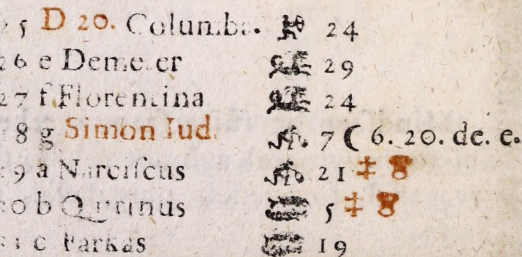 5 D 20. Columba. 24
26 e Demeter 29
27 f Florentina 24
8 g Simon Iud. 7 ( 6. 20. de. e.
29 a Narciſcus 21 ‡ 8
30 b Quirinus 5 ‡ 8
31 c Farkas 19